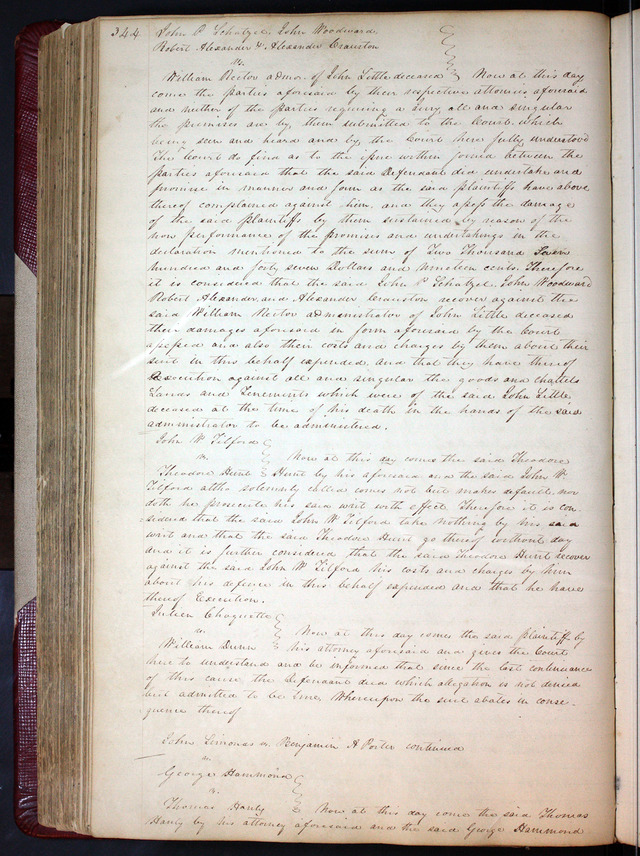 344 John P Schatzel John Woodward
Robert Alexander & Alexander Cranston
vs.
William Rector admor. of John Little deceased Now at this day
come the parties aforesaid by their respective attornies aforesaid
and neither of the parties requiring a Jury, all and singular
the premises are by them submitted to the Court which
being seen and heard and by the Court here fully understood
The Court do find as to the issue within joined between the
parties aforesaid that the said Defendant did undertake and
promise in manner and form as the said plaintiffs have above
thereof complained against him, and they assess the damage
of the said plaintiffs by them sustained by reason of the
non performance of the promises and undertakings in the
declaration mentioned to the sum of Two Thousand Seven
hundred and forty seven Dollars and nineteen cents. Therefore
it is considered that the said John P Schatzel, John Woodward
Robert Alexander and Alexander Cranston recover against the
said William Rector administrator of John Little deceased
their damages aforesaid in form aforesaid by the Court
assessed and also their costs and charges by them about their
suit in this behalf expended and that they have thereof
Execution against all and singular the goods and chattels
Lands and Tenements which were of the said John Little
deceased at the time of his death in the hands of the said
administrator to be administered.
John W Tilford
vs. Now at this day comes the said Theodore
Theodore Hunt Hunt by his aforesaid and the said John W
Tilford altho solemnly called comes not but makes default nor
doth he prosecute his said writ with effect Therefore it is con-
sidered that the said John W Tilford take nothing by his said
writ and that the said Theodore Hunt go thereof without day
And it is further considered that the said Theodore Hunt recover
against the said John W Tilford his costs and charges by him
about his defence in this behalf expended and that he have
thereof Execution.
Julien Choquette
vs. Now at this day comes the said plaintiff by
William Dunn his attorney aforesaid and gives the Court
here to understand and be informed that since the last continuance
of this cause the Defendant died which allegation is not denied
but admitted to be true, Whereupon the suit abates in conse-
quence thereof
John Simonds vs. Benjamin A Porter continued
vs
George Hammond
vs.
Thomas Hanly Now at this day come the said Thomas
Hanly by his attorney aforesaid and the said George Hammond